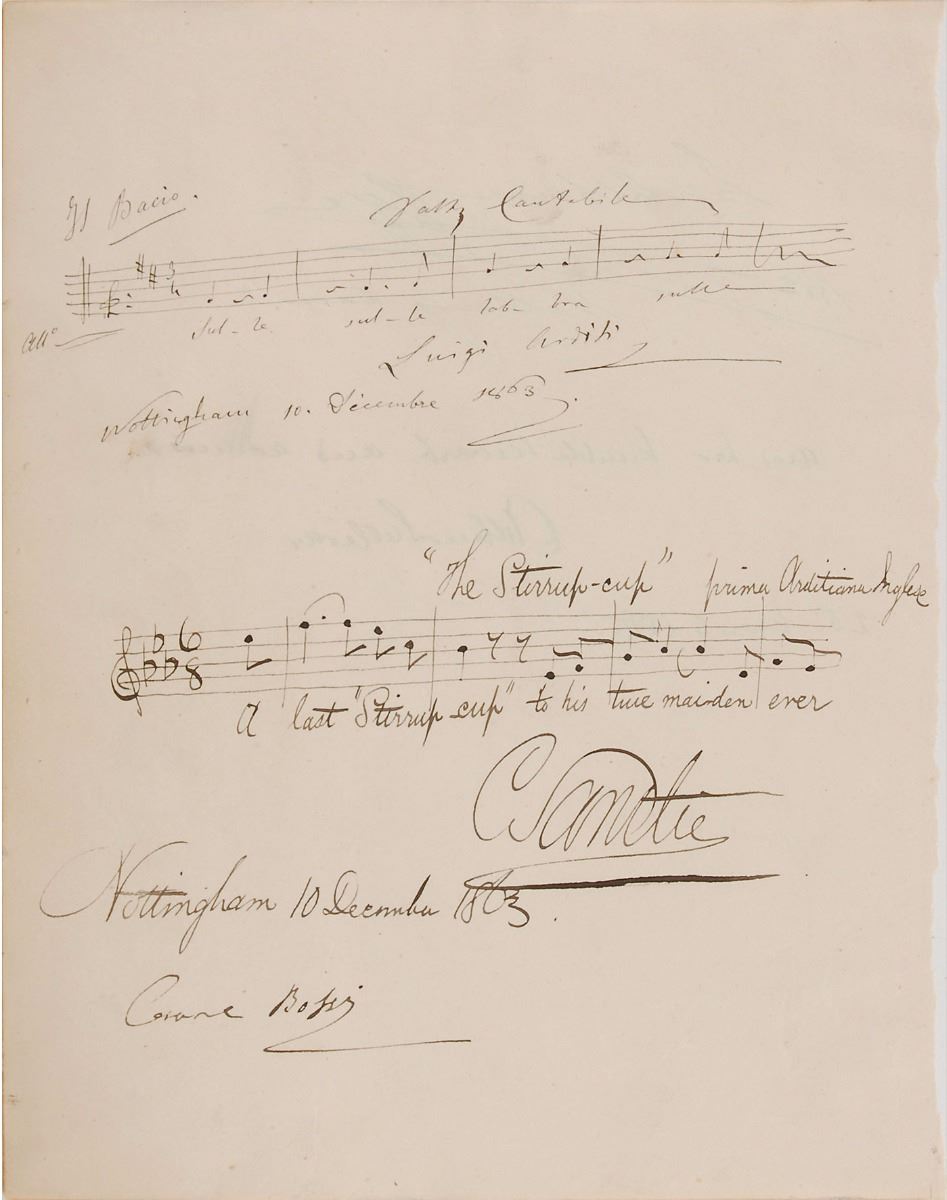 Il Bacio.
Valz Cantabile
All°
Sul-le sul-le lab-bra sulle
Luigi Arditi
Nottingham 10. Décembre 1863.
"The Stirrup-cup" prima Arditiana Inglese
6
8
A last "Stirrup-cup" to his true maiden ever
CSantley
Nottingham 10 December 1863.
Bossi